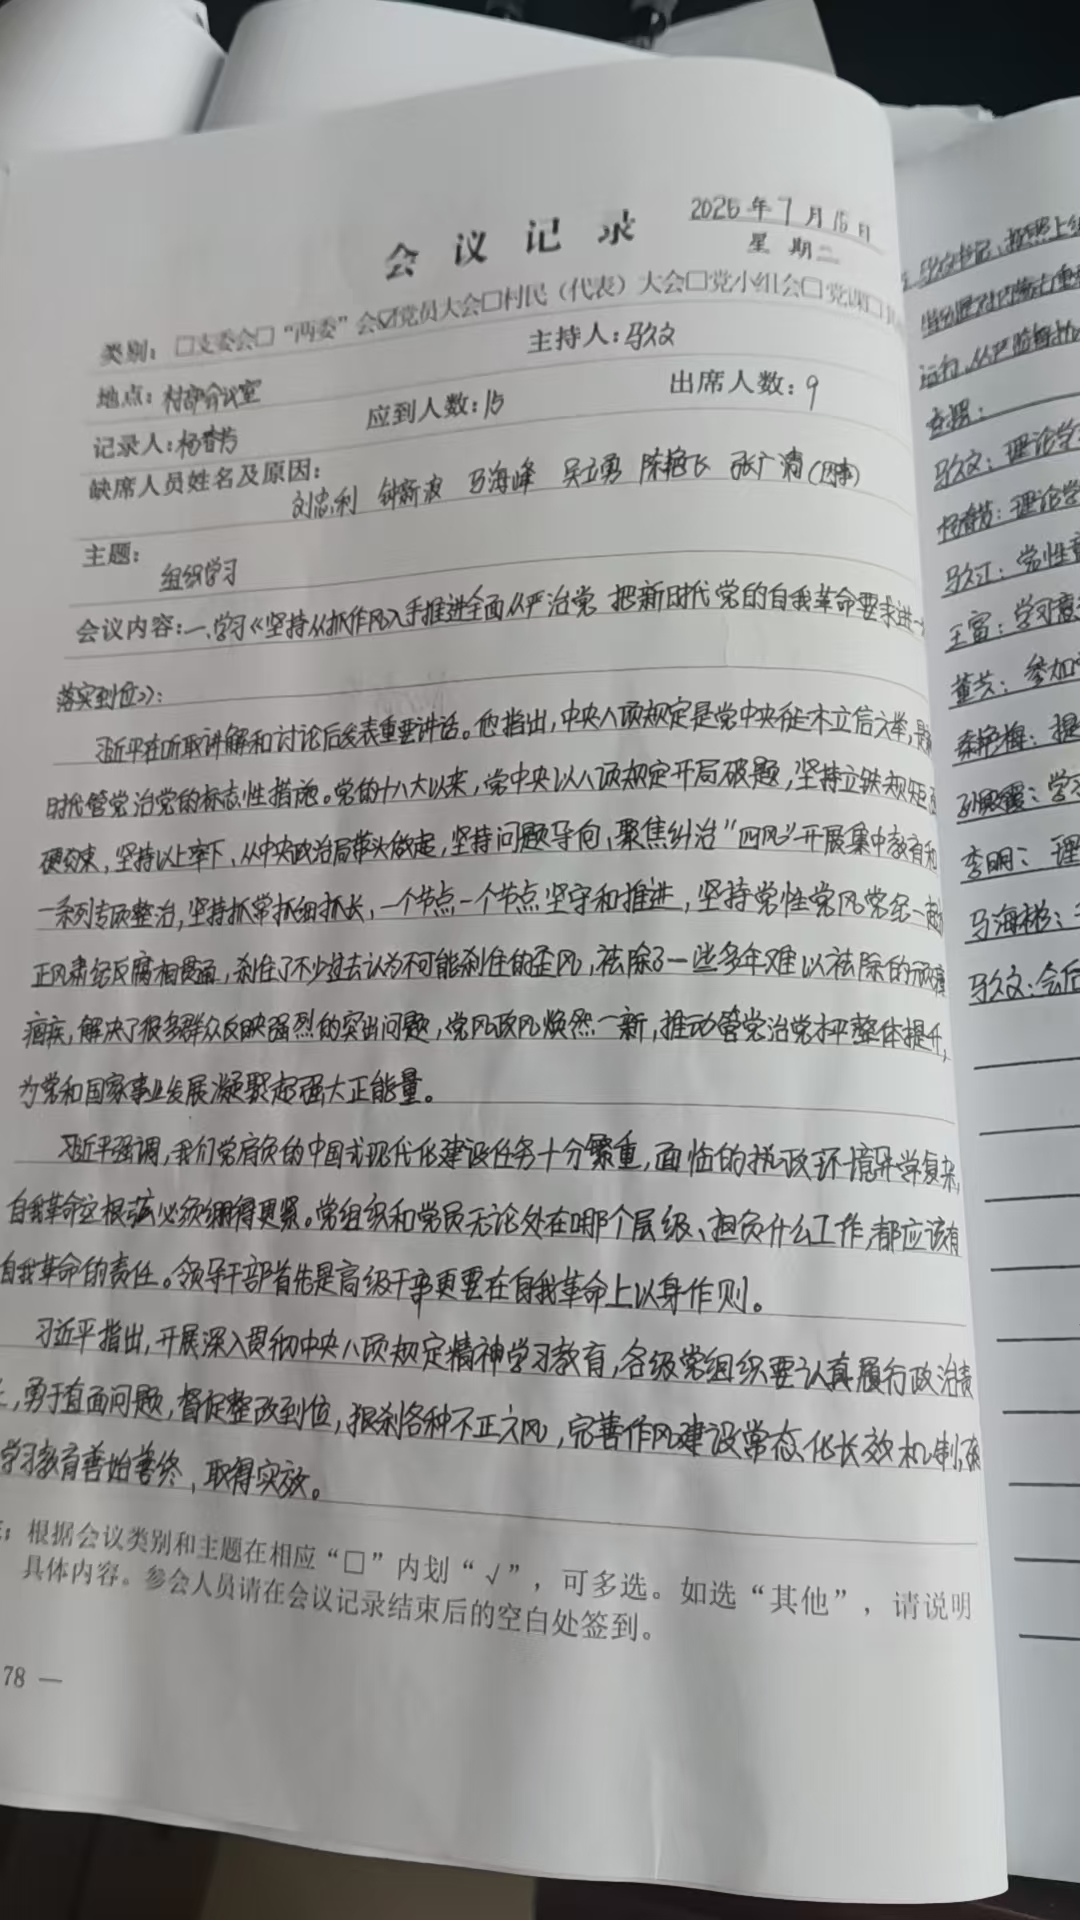 会议记录
2025年7月15日
星期二
类别：□支委会□“两委”会☑党员大会□村民（代表）大会□党小组会□党课□
地点：村部会议室 主持人：马久文
记录人：杨春芳 应到人数：15 出席人数：9
缺席人员姓名及原因：
刘忠利 钟新波 马海峰 吴立勇 陈艳飞 张广清（因事）
主题：
组织学习
会议内容：一、学习《坚持从抓作风入手推进全面从严治党 把新时代党的自我革命要求进一
落实到位》：
习近平在听取讲解和讨论后发表重要讲话。他指出，中央八项规定是党中央徙木立信之举，是
时代管党治党的标志性措施。党的十八大以来，党中央以八项规定开局破题，坚持立铁规矩
硬约束，坚持以上率下、从中央政治局带头做起，坚持问题导向，聚焦纠治“四风”开展集中教育和
一系列专项整治，坚持抓常抓细抓长，一个节点一个节点坚守和推进，坚持党性党风党纪一起
正风肃纪反腐相贯通，刹住了不少过去认为不可能刹住的歪风，祛除了一些多年难以祛除的顽瘴
痼疾，解决了很多群众反映强烈的突出问题，党风政风焕然一新，推动管党治党水平整体提升，
为党和国家事业发展凝聚起强大正能量。
习近平强调，我们党肩负的中国式现代化建设任务十分繁重，面临的执政环境异常复杂，
自我革命这根弦必须绷得更紧。党组织和党员无论处在哪个层级、担负什么工作，都应该有
自我革命的责任。领导干部首先是高级干部更要在自我革命上以身作则。
习近平指出，开展深入贯彻中央八项规定精神学习教育，各级党组织要认真履行政治责
，勇于直面问题，督促整改到位，狠刹各种不正之风，完善作风建设常态化长效机制，确
学习教育善始善终，取得实效。
：根据会议类别和主题在相应“□”内划“√”，可多选。如选“其他”，请说明
具体内容。参会人员请在会议记录结束后的空白处签到。
78 —
马久文：理论学
杨春芳：理论学
马久江：党性
王富：学习
董芳：参加
秦艳梅：提
孙殿霞：学习
李明：理
马海彬：
马久文：会后